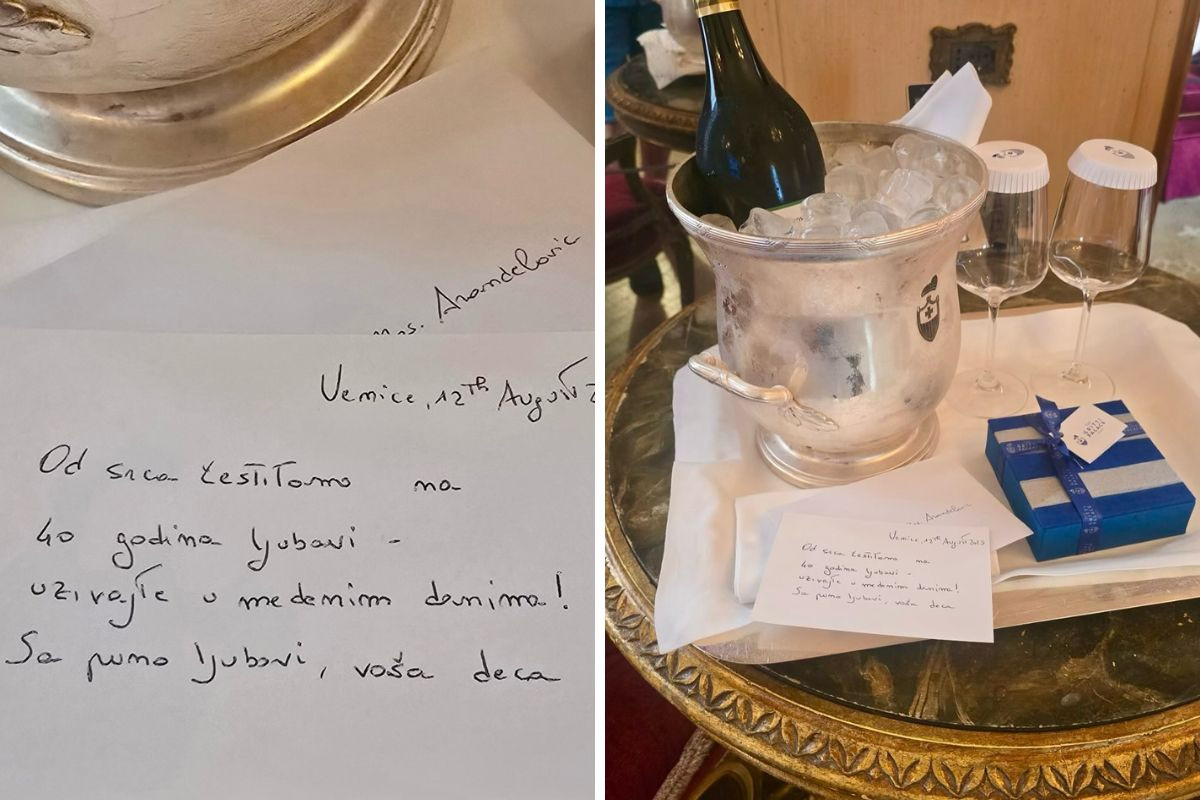 mrs. Arandelovic
Venice, 12th August 2
Od srca čestitamo na
40 godina ljubavi -
uživajte u medenim danima!
Sa puno ljubavi, vaša deca
mrs. Arandelovic
Venice, 12th August
Od srca čestitamo na
40 godina ljubavi -
uživajte u medenim danima!
Sa puno ljubavi, vaša deca
THE
GRITTI
PALACE